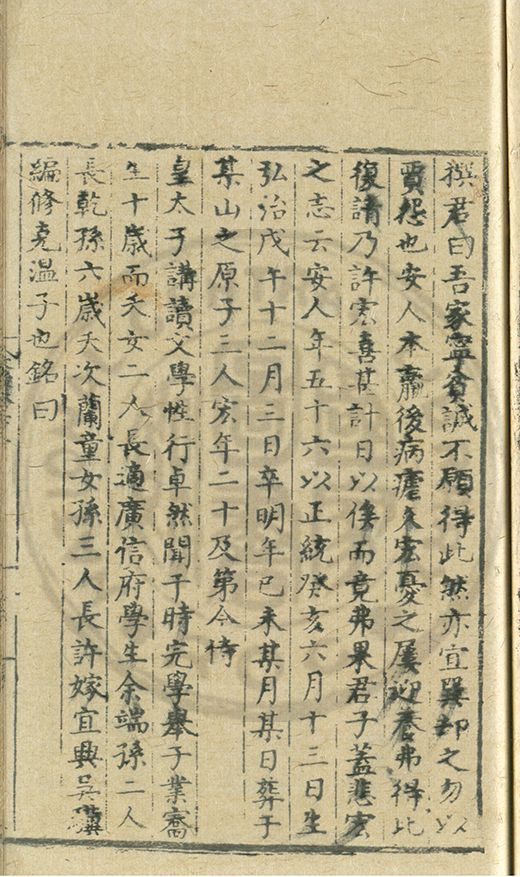 撰君曰吾家寧貧誠不願得此然亦宜巽却之勿以
賈怨也安人本羸後病瘧久宏憂之屢迎養弗得比
復請乃許宏喜甚計日以俟而竟弗果君子蓋悲宏
之志云安人年五十六以正統癸亥六月十三日生
弘治戊午十二月三日卒明年已未某月某日葬于
某山之原子三人宏年二十及第今侍
皇太子講讀文學性行卓然聞于時完學舉子業喬
生十歲而夭女二人長適廣信府學生余端孫二人
長乾孫六歲夭次蘭童女孫三人長許嫁宜興吳
編修克溫子也銘曰